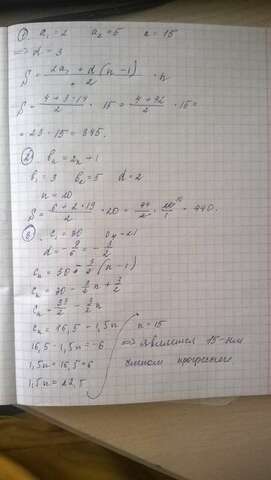 ① a₁=2 a₂=5 n=15
⇒ d=3
S = (2a₁ + d(n-1))/2 · n
S = (4+3·14)/2 · 15 = (4+42)/2 · 15 =
= 23·15 = 345.
② bₙ = 2n + 1
b₁=3 b₂=5 d=2
n=20
S = (6+2·19)/2 · 20 = 44/2 · 20/1 = 440.
③ c₁=30 c₇=21
d = -9/6 = -3/2
cₙ = 30 - 3/2 (n-1)
cₙ = 30 - 3/2 n + 3/2
cₙ = 33/2 - 3/2 n
cₙ = 16,5 - 1,5n n=15
16,5 - 1,5n = -6 ⇒ является 15-ым
1,5n = 16,5+6 членом прогрессии
1,5n = 22,5